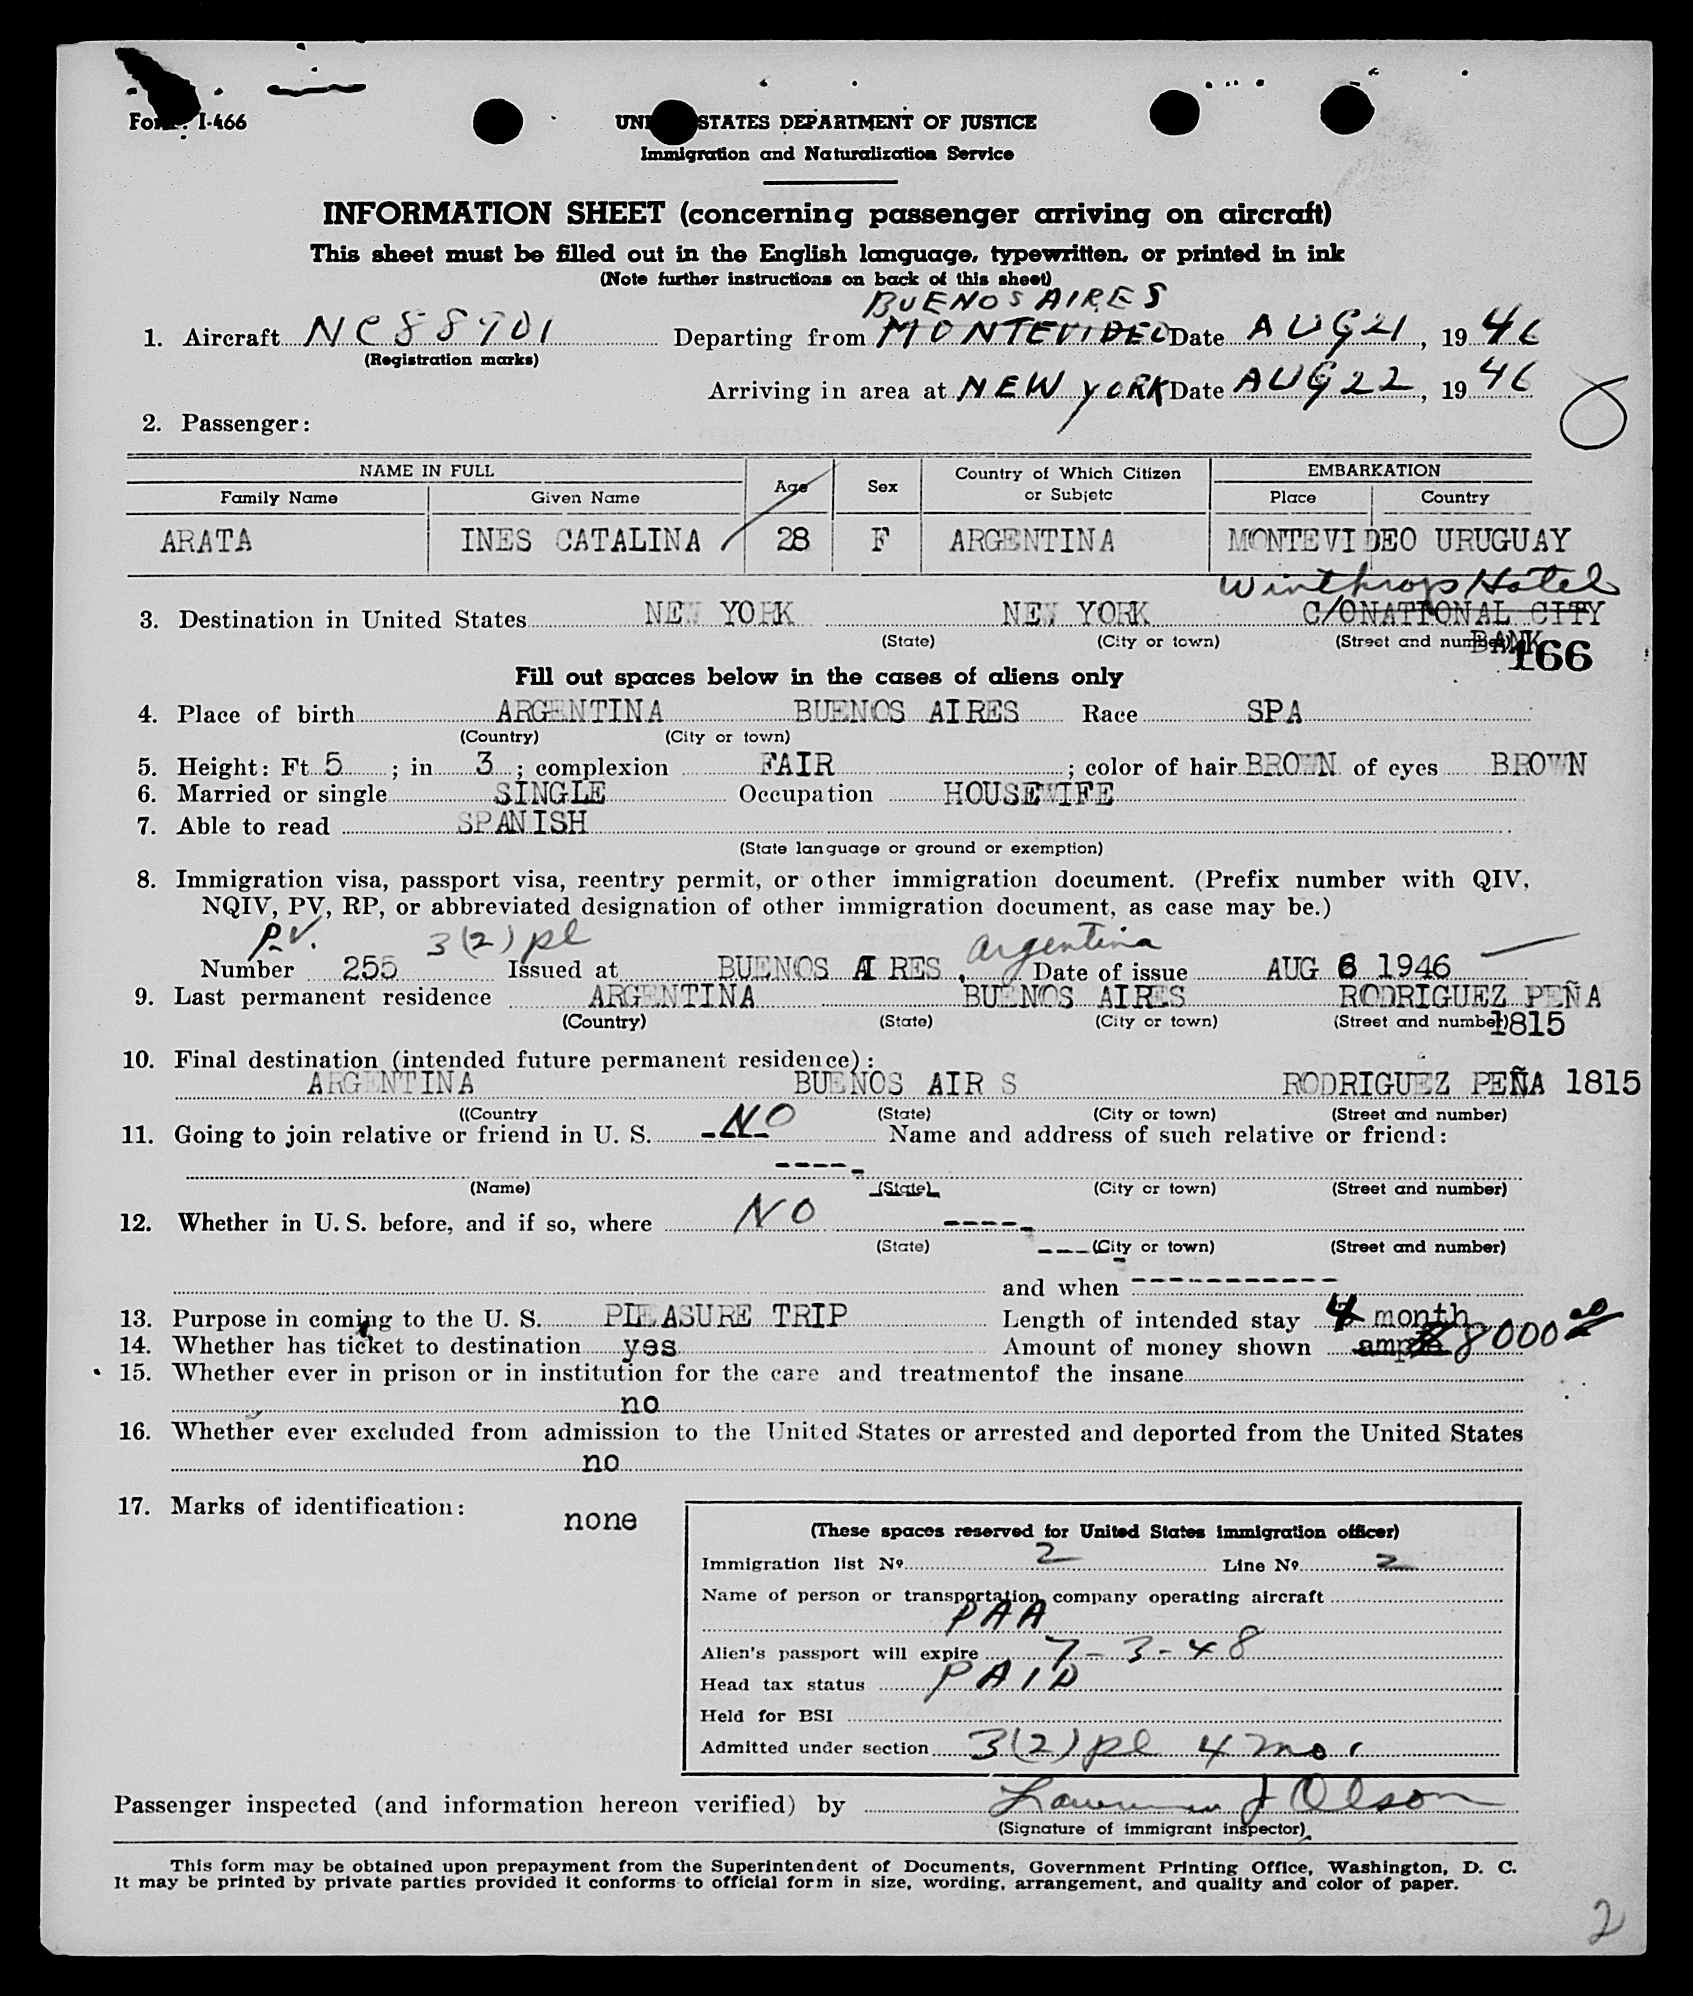 Form I-466
UNITED STATES DEPARTMENT OF JUSTICE
Immigration and Naturalization Service
INFORMATION SHEET (concerning passenger arriving on aircraft)
This sheet must be filled out in the English language, typewritten, or printed in ink
(Note further instructions on back of this sheet)
BUENOS AIRES
1. Aircraft NC88901 Departing from MONTEVIDEO Date AUG 21, 1946
(Registration marks)
Arriving in area at NEW YORK Date AUG 22, 1946
2. Passenger:
NAME IN FULL Age Sex Country of Which Citizen or Subjetc EMBARKATION
Family Name Given Name Place Country
ARATA INES CATALINA 28 F ARGENTINA MONTEVIDEO URUGUAY
Winthrop Hotel
3. Destination in United States NEW YORK NEW YORK C/O NATIONAL CITY
(State) (City or town) (Street and number) BANK
166
Fill out spaces below in the cases of aliens only
4. Place of birth ARGENTINA BUENOS AIRES Race SPA
(Country) (City or town)
5. Height: Ft 5 ; in 3 ; complexion FAIR ; color of hair BROWN of eyes BROWN
6. Married or single SINGLE Occupation HOUSEWIFE
7. Able to read SPANISH
(State language or ground or exemption)
8. Immigration visa, passport visa, reentry permit, or other immigration document. (Prefix number with QIV,
NQIV, PV, RP, or abbreviated designation of other immigration document, as case may be.)
P.V. 3(2) pl Argentina
Number 255 Issued at BUENOS AIRES, Date of issue AUG 6 1946
9. Last permanent residence ARGENTINA BUENOS AIRES RODRIGUEZ PEÑA
(Country) (State) (City or town) (Street and number) 1815
10. Final destination (intended future permanent residence):
ARGENTINA BUENOS AIR S RODRIGUEZ PEÑA 1815
((Country (State) (City or town) (Street and number)
11. Going to join relative or friend in U. S. NO Name and address of such relative or friend:
-----
(Name) (State) (City or town) (Street and number)
12. Whether in U. S. before, and if so, where NO -----
(State) ---(City or town) (Street and number)
and when ------------
13. Purpose in coming to the U. S. PLEASURE TRIP Length of intended stay 4 month
14. Whether has ticket to destination yes Amount of money shown 8000
15. Whether ever in prison or in institution for the care and treatmentof the insane
no
16. Whether ever excluded from admission to the United States or arrested and deported from the United States
no
17. Marks of identification: none
(These spaces reserved for United States immigration officer)
Immigration list Nº 2 Line Nº 2
Name of person or transportation company operating aircraft
PAA
Alien's passport will expire 7-3-48
Head tax status PAID
Held for BSI
Admitted under section 3(2) pl 4 mo.
Passenger inspected (and information hereon verified) by Lawrence J Olson
(Signature of immigrant inspector)
This form may be obtained upon prepayment from the Superintendent of Documents, Government Printing Office, Washington, D. C.
It may be printed by private parties provided it conforms to official form in size, wording, arrangement, and quality and color of paper.
2